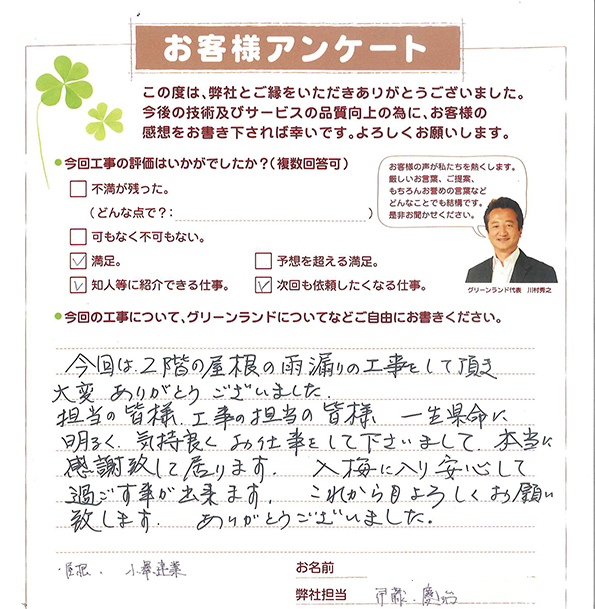 お客様アンケート
この度は、弊社とご縁をいただきありがとうございました。
今後の技術及びサービスの品質向上の為に、お客様の
感想をお書き下されば幸いです。よろしくお願いします。
今回工事の評価はいかがでしたか?(複数回答可)
不満が残った。
(どんな点で?: )
可もなく不可もない。
満足。
予想を超える満足。
知人等に紹介できる仕事。
次回も依頼したくなる仕事。
お客様の声が私たちを熱くします。
厳しいお言葉、ご提案、
もちろんお誉めの言葉など
どんなことでも結構です。
是非お聞かせください。
グリーンランド代表 川村秀之
今回の工事について、グリーンランドについてなどご自由にお書きください。
今回は、2階の屋根の雨漏りの工事をして頂き
大変 ありがとう ございました.
担当の皆様、工事の担当の皆様 一生県命に
明るく、気持良く お仕事をして下さいまして、本当に
感謝致して居ります. 入梅に入り安心して
過ごす事が出来ます. これから月よろしくお願い
致します. ありがとうございました。
屋根. 小澤建業
お名前
弊社担当 伊藤